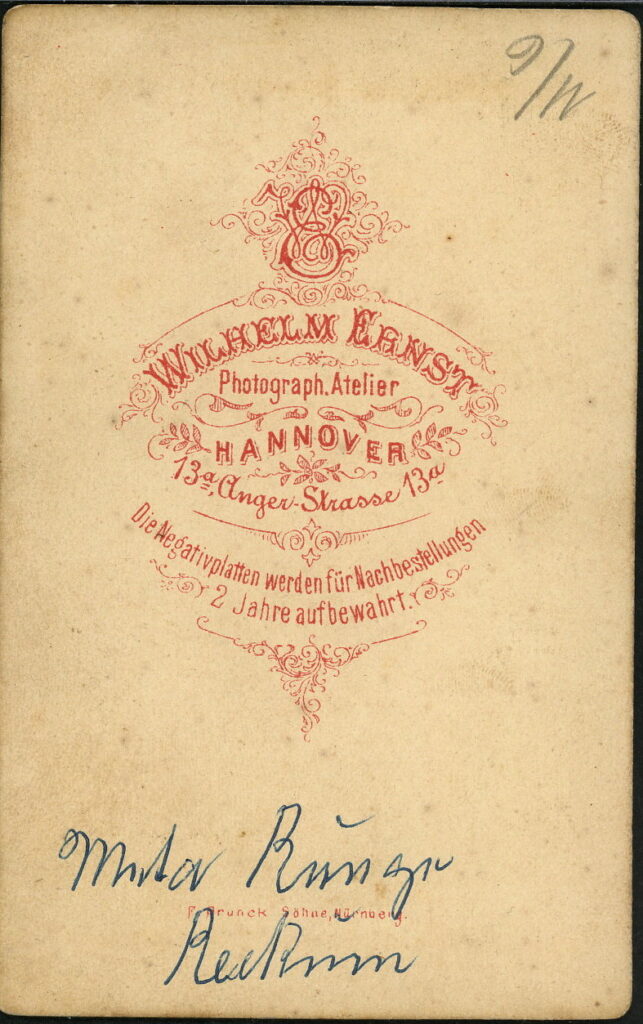 WE
WILHELM ERNST
Photograph. Atelier
HANNOVER
13a, Anger-Strasse 13a
Die Negativplatten werden für Nachbestellungen
2 Jahre aufbewahrt.
Meta Runge
Söhne, Nürnberg.
Reckum